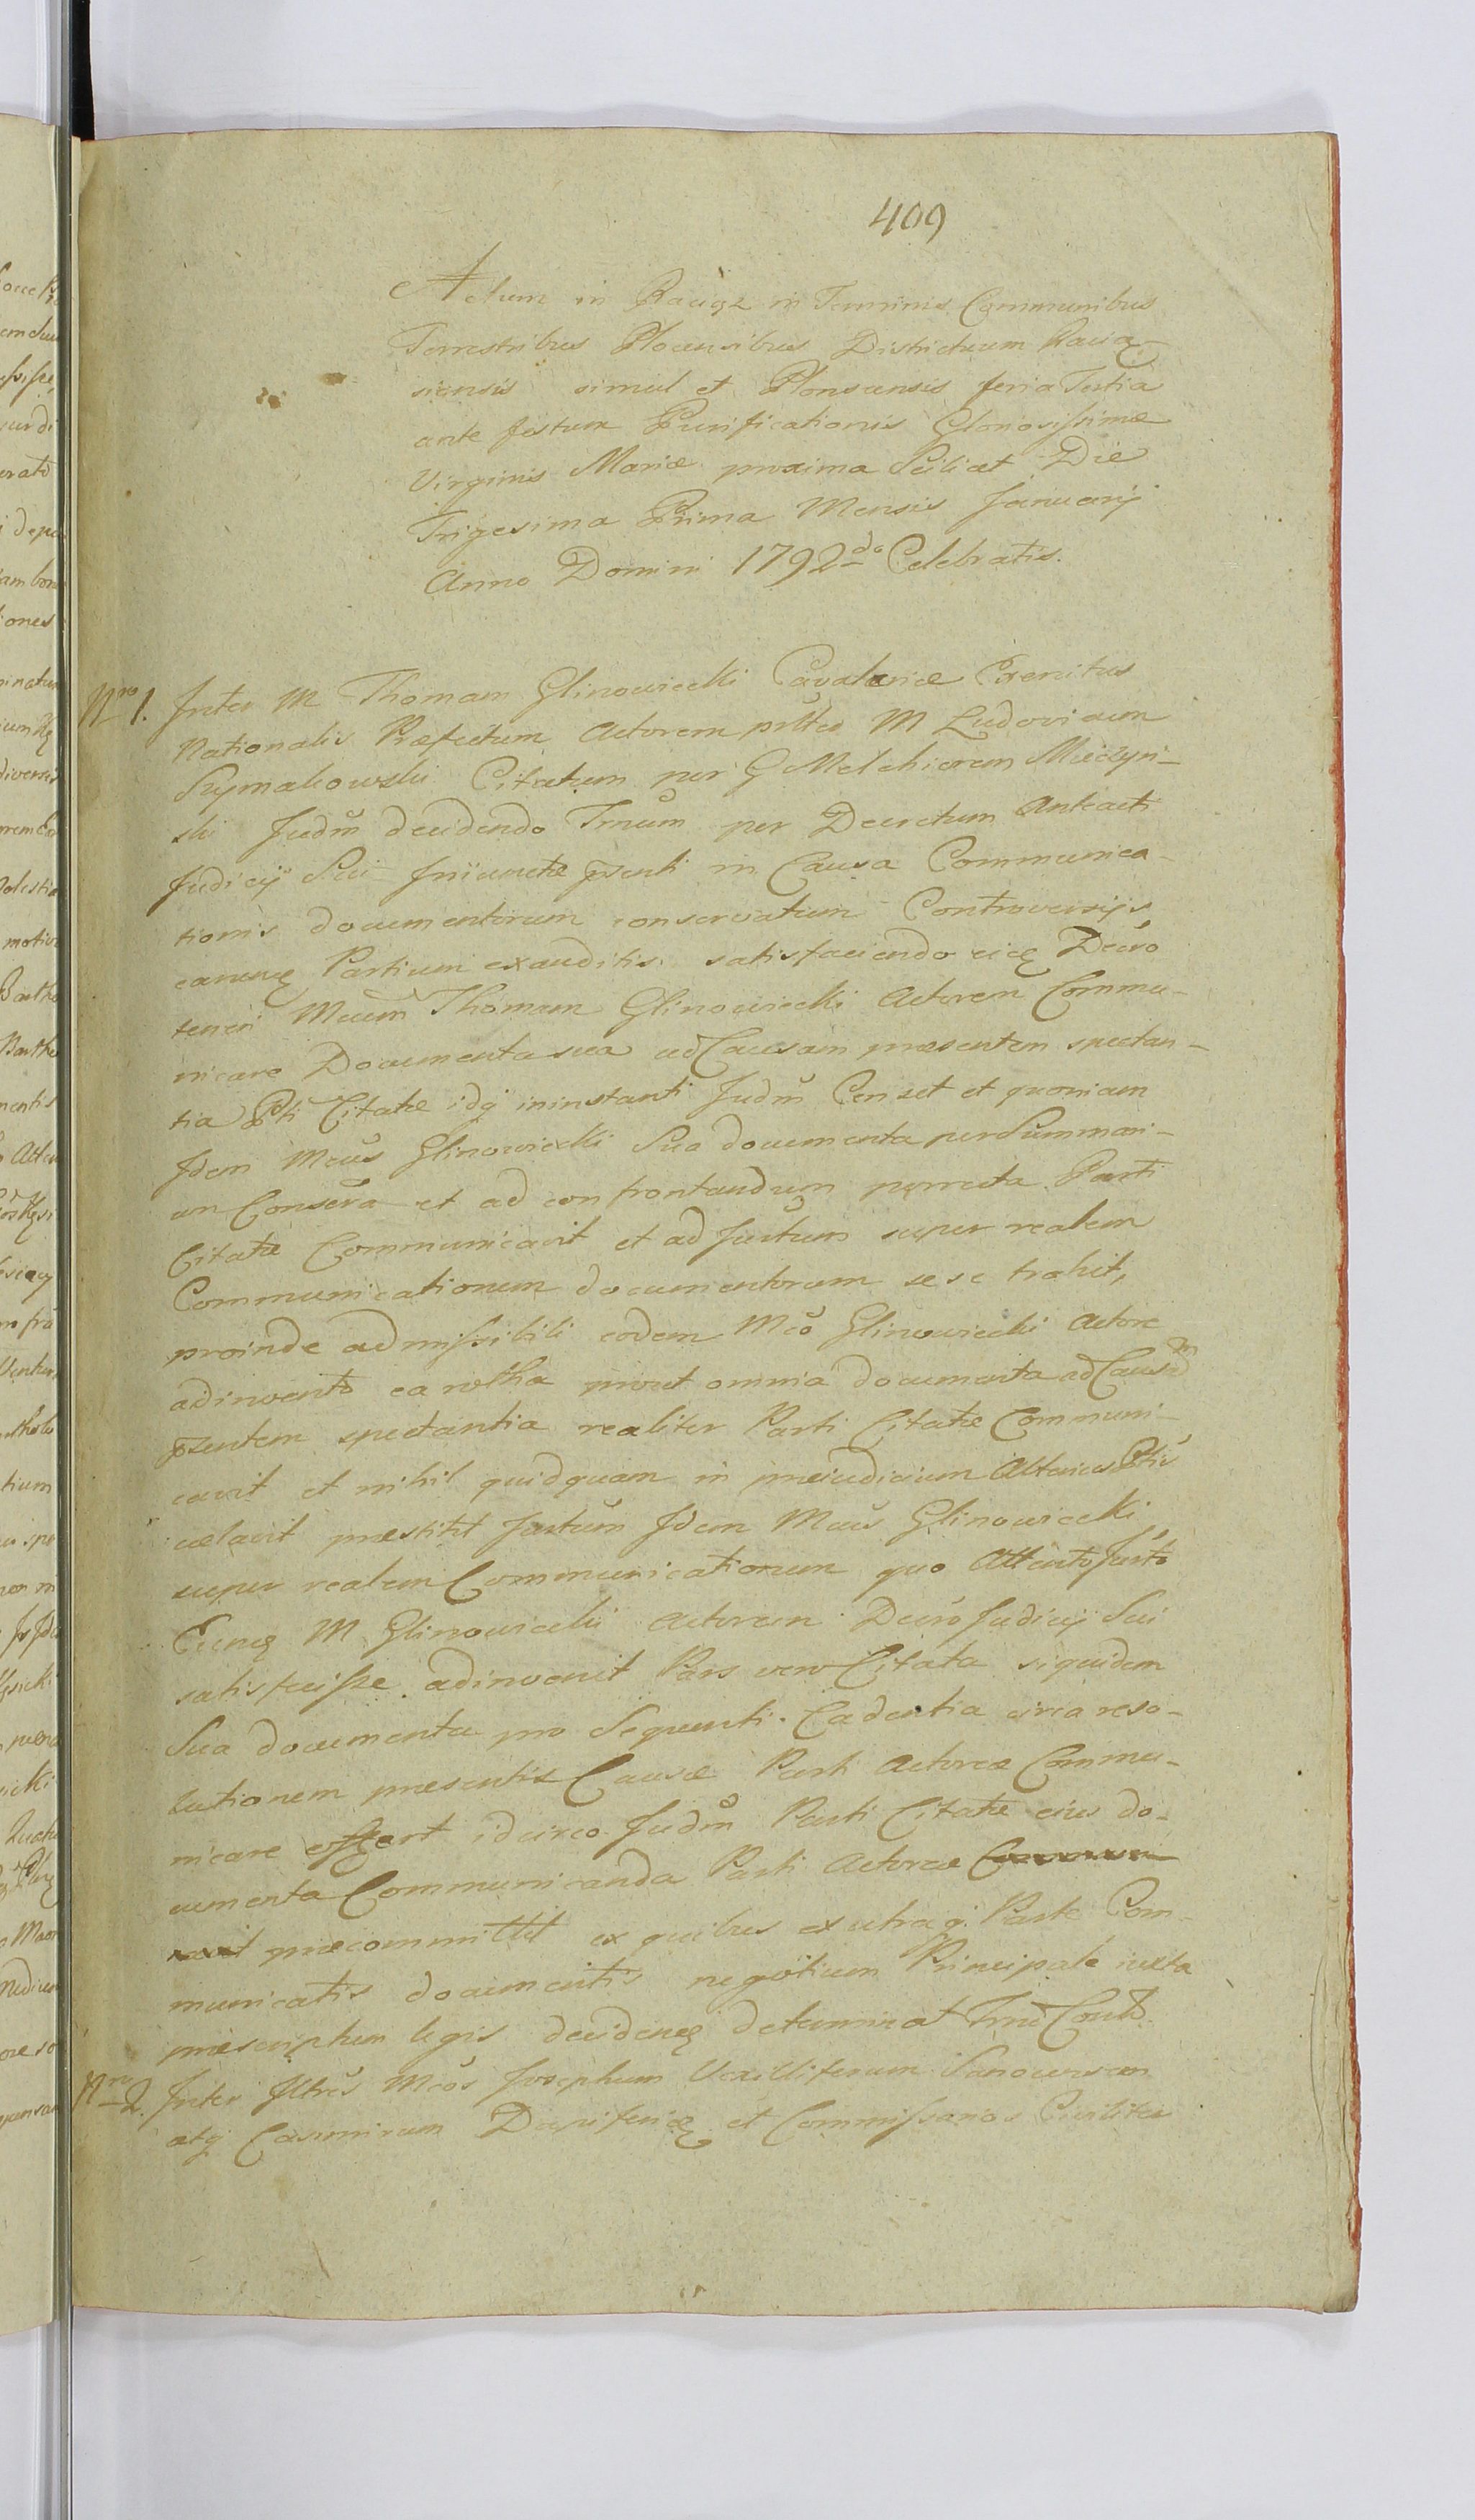 409
Actum in Raciąz in Terminis Communibus
Terrestribus Plocensibus Districtuum Racią-
siensis simul et Plonscensis feria Tertia
ante festum Purificationis Gloriosissimæ
Virginis Mariæ proxima Scilicet Die
Trigesima Prima Mensis Januarij
Anno Domini 1792do Celebratis.
Nro 1. Inter M Thomam Glinowiecki Cavaleriæ Exercitus
Nationalis Præfectum Actorem M Ludovicum
Szymakowski Citatum per G Melchiorem Mieczyń-
ski Judm decidendo Tnum per Decretum Anteacti
Judicij Sui Iniunctæ pzenti in Causa Communica-
tionis documentorum conservatum Controversijs
earumq Partium exauditis satisfaciendo eicq Decro
teneri Mcum Thomam Glinowiecki Actorem Commu-
nicare Documenta sua ad Causam præsentem spectan-
tia Pti Citatæ idq ininstanti Judm Censet et quoniam
Idem Mcus Glinowiecki Sua documenta per Summari-
um Consera et ad confrontandum porrecta Parti
Citatæ Communicavit et ad Jurtum super realem
Communicationem documentorum sese trahit,
proinde admissibili eodem Mco Glinowiecki Actore
adinvento ea rotha prout omnia documenta ad Causam
pzentem spectantia realiter Parti Citatæ Communi-
cavit et nihil quidquam in præiudicium Alterius Ptis
celavit præstitit Jurtum Idem Mcus Glinowiecki
super realem Communicationem quo Attento Jurto
Eumq M Glinowiecki Actorem Decro Judicij Sui
satisfecisse adinvenit Pars vero Citata siquidem
Sua documenta pro Sequenti Cadentia circa reso-
lutionem præsentis Causæ Parti Actoreæ Commu-
nicare offert idcirco Judm Parti Citatæ eius do-
cumenta Communicanda Parti Actoreæ Communi-
cavit præcommittit ex quibus ex utraq Parte Com-
municatis documentis negotium Principale iuxta
præscriptum legis decidenq determinat Tnu
Nro 2. Inter Illres Mcos Josephum Vexilliferum
atq Casimirum Dapiferiq et Commissarios Civiliter